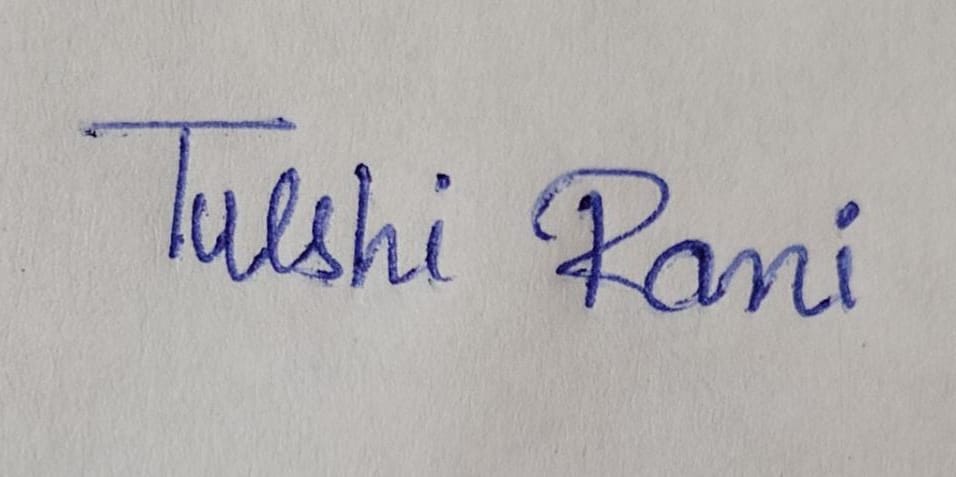 Tulshi Rani